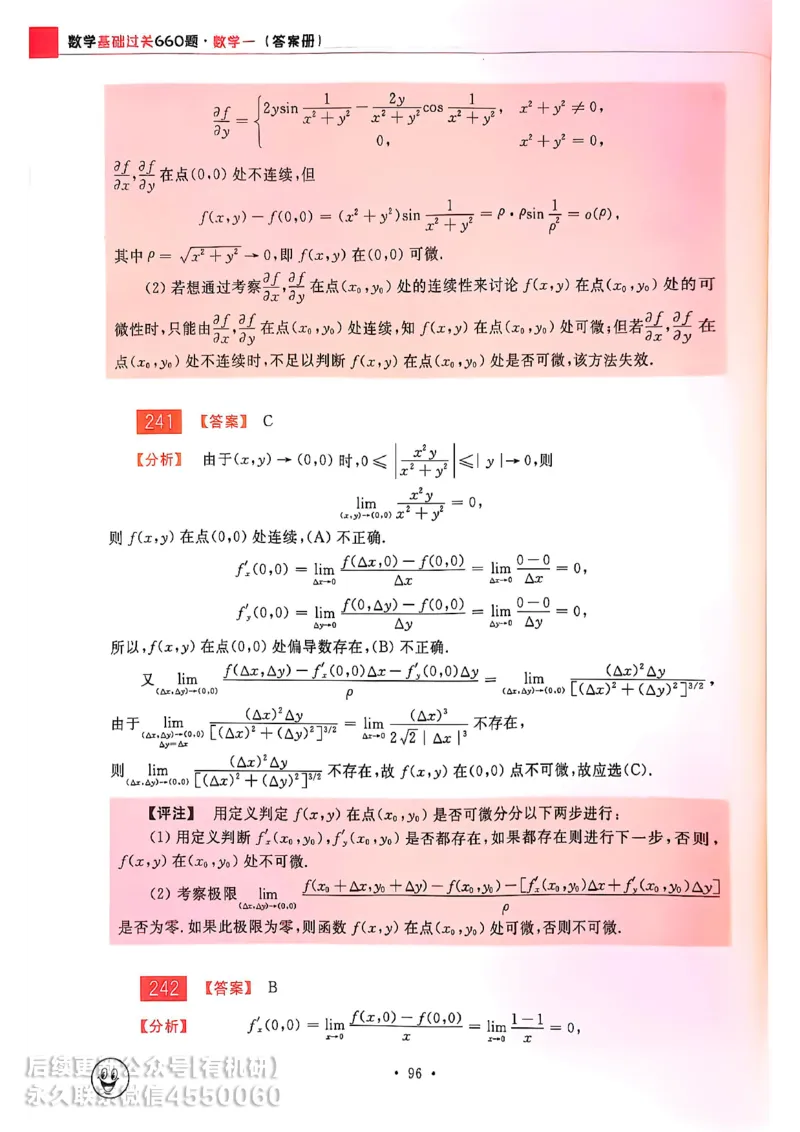 数学基础过关660题·数学一(答案册)
∂f/∂y = { 2ysin 1/(x²+y²) − 2y/(x²+y²) cos 1/(x²+y²), x²+y² ≠ 0,
0, x²+y² = 0,
∂f/∂x, ∂f/∂y 在点(0,0) 处不连续,但
f(x,y) − f(0,0) = (x²+y²)sin 1/(x²+y²) = ρ·ρsin 1/ρ² = o(ρ),
其中 ρ = √(x²+y²) → 0,即 f(x,y) 在(0,0) 可微.
(2) 若想通过考察 ∂f/∂x, ∂f/∂y 在点(x₀,y₀) 处的连续性来讨论 f(x,y) 在点(x₀,y₀) 处的可
微性时,只能由 ∂f/∂x, ∂f/∂y 在点(x₀,y₀) 处连续,知 f(x,y) 在点(x₀,y₀) 处可微;但若 ∂f/∂x, ∂f/∂y 在
点(x₀,y₀) 处不连续时,不足以判断 f(x,y) 在点(x₀,y₀) 处是否可微,该方法失效.
241 【答案】 C
【分析】 由于(x,y) → (0,0) 时,0 ≤ |x²y/(x²+y²)| ≤ | y | → 0,则
lim_{(x,y)→(0,0)} x²y/(x²+y²) = 0,
则 f(x,y) 在点(0,0) 处连续,(A) 不正确.
f′ₓ(0,0) = lim_{Δx→0} [f(Δx,0) − f(0,0)]/Δx = lim_{Δx→0} (0−0)/Δx = 0,
f′_y(0,0) = lim_{Δy→0} [f(0,Δy) − f(0,0)]/Δy = lim_{Δy→0} (0−0)/Δy = 0,
所以,f(x,y) 在点(0,0) 处偏导数存在,(B) 不正确.
又 lim_{(Δx,Δy)→(0,0)} [f(Δx,Δy) − f′ₓ(0,0)Δx − f′_y(0,0)Δy]/ρ = lim_{(Δx,Δy)→(0,0)} (Δx)²Δy/[(Δx)²+(Δy)²]^{3/2},
由于 lim_{(Δx,Δy)→(0,0), Δy=Δx} (Δx)²Δy/[(Δx)²+(Δy)²]^{3/2} = lim_{Δx→0} (Δx)³/(2√2 | Δx |³) 不存在,
则 lim_{(Δx,Δy)→(0,0)} (Δx)²Δy/[(Δx)²+(Δy)²]^{3/2} 不存在,故 f(x,y) 在(0,0) 点不可微,故应选(C).
【评注】 用定义判定 f(x,y) 在点(x₀,y₀) 是否可微分分以下两步进行:
(1) 用定义判断 f′ₓ(x₀,y₀),f′_y(x₀,y₀) 是否都存在,如果都存在则进行下一步,否则,
f(x,y) 在(x₀,y₀) 处不可微.
(2) 考察极限 lim_{(Δx,Δy)→(0,0)} {f(x₀+Δx,y₀+Δy) − f(x₀,y₀) − [f′ₓ(x₀,y₀)Δx + f′_y(x₀,y₀)Δy]}/ρ
是否为零. 如果此极限为零,则函数 f(x,y) 在点(x₀,y₀) 处可微,否则不可微.
242 【答案】 B
【分析】 f′ₓ(0,0) = lim_{x→0} [f(x,0) − f(0,0)]/x = lim_{x→0} (1−1)/x = 0,
后续更新公众号[有机研]
永久联系微信4550060
· 96 ·